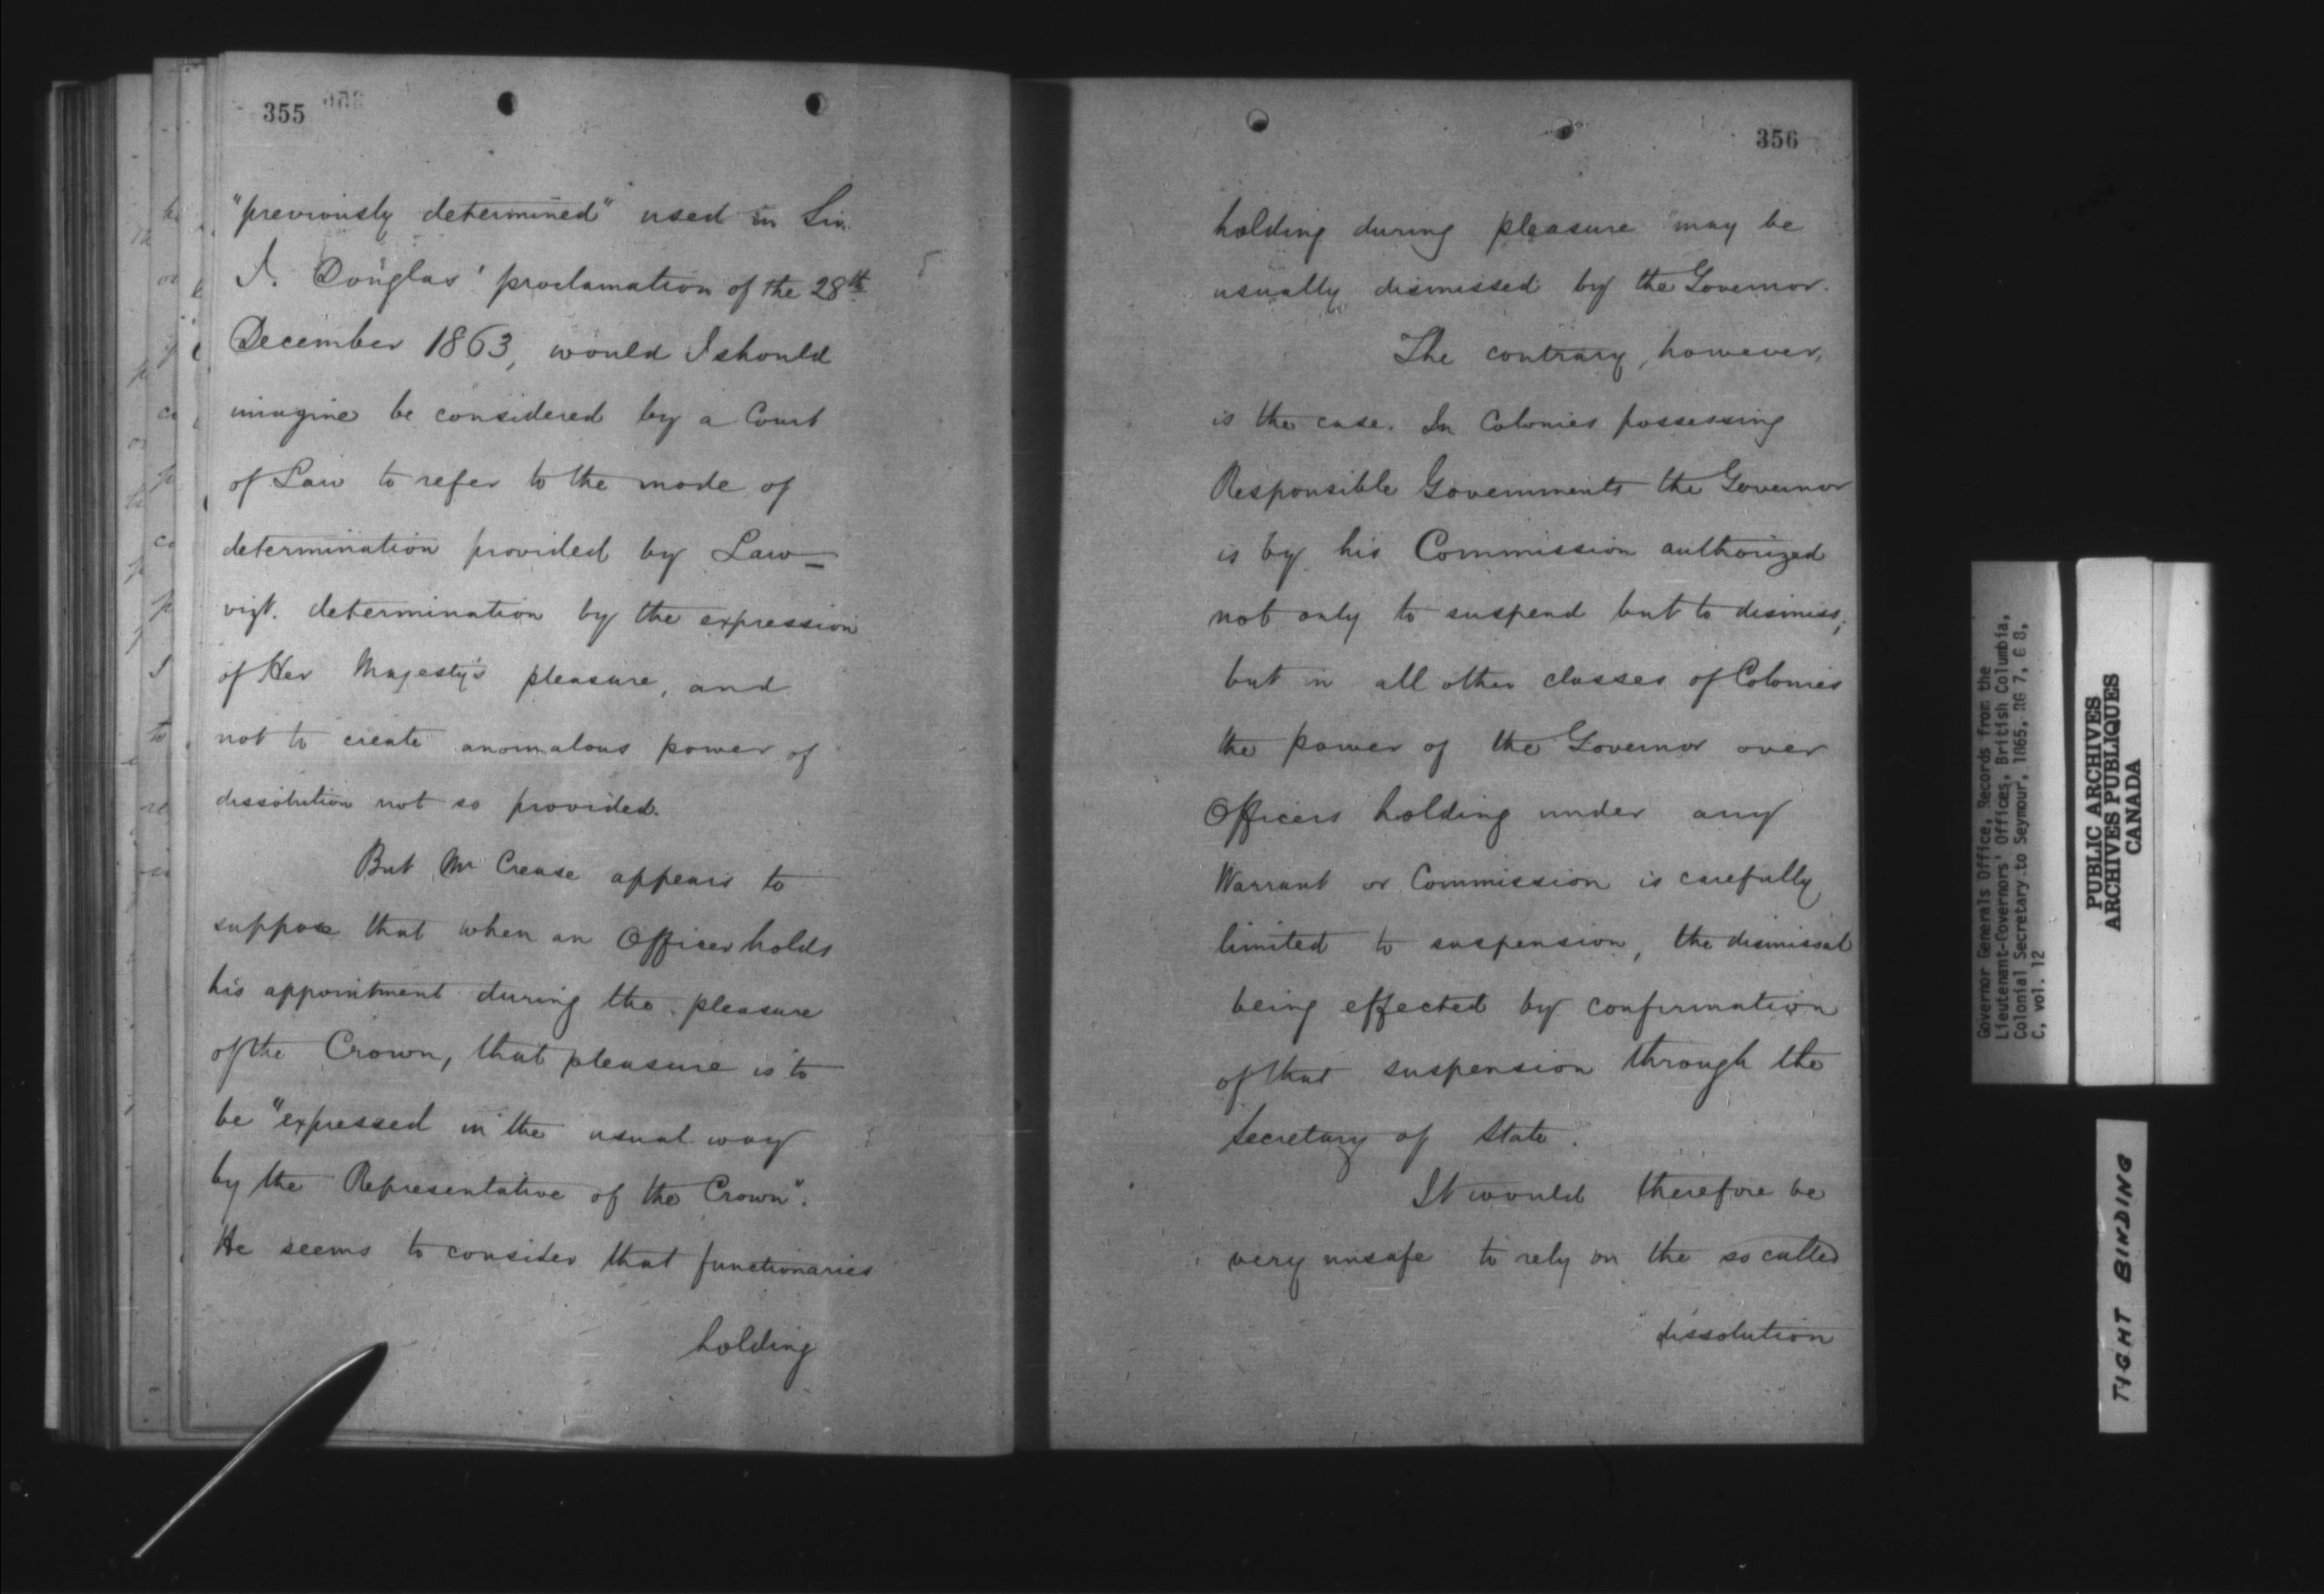 355
"previously determined" used in Sir
J. Douglas' proclamation of the 28th
December 1863, would I should
imagine be considered by a Court
of Law to refer to the mode of
determination provided by Law—
vizt. determination by the expression
of Her Majesty's pleasure, and
not to create anomalous power of
dissolution not so provided.
But Mr Crease appears to
suppose that when an Officer holds
his appointment during the pleasure
of the Crown, that pleasure is to
be "expressed in the usual way
by the Representative of the Crown".
He seems to consider that functionaries
holding
356
holding during pleasure may be
usually dismissed by the Governor.
The contrary, however,
is the case. In Colonies possessing
Responsible Governments the Governor
is by his Commission authorized
not only to suspend but to dismiss;
but in all other classes of Colonies
the power of the Governor over
Officers holding under any
Warrant or Commission is carefully
limited to suspension, the dismissal
being effected by confirmation
of that suspension through the
Secretary of State.
It would therefore be
very unsafe to rely on the so called
dissolution
Governor Generals Office, Records from the
Lieutenant-Governors' Offices, British Columbia,
Colonial Secretary to Seymour, 1865, RG 7, G 8,
C, vol. 12
PUBLIC ARCHIVES
ARCHIVES PUBLIQUES
CANADA
TIGHT BINDING